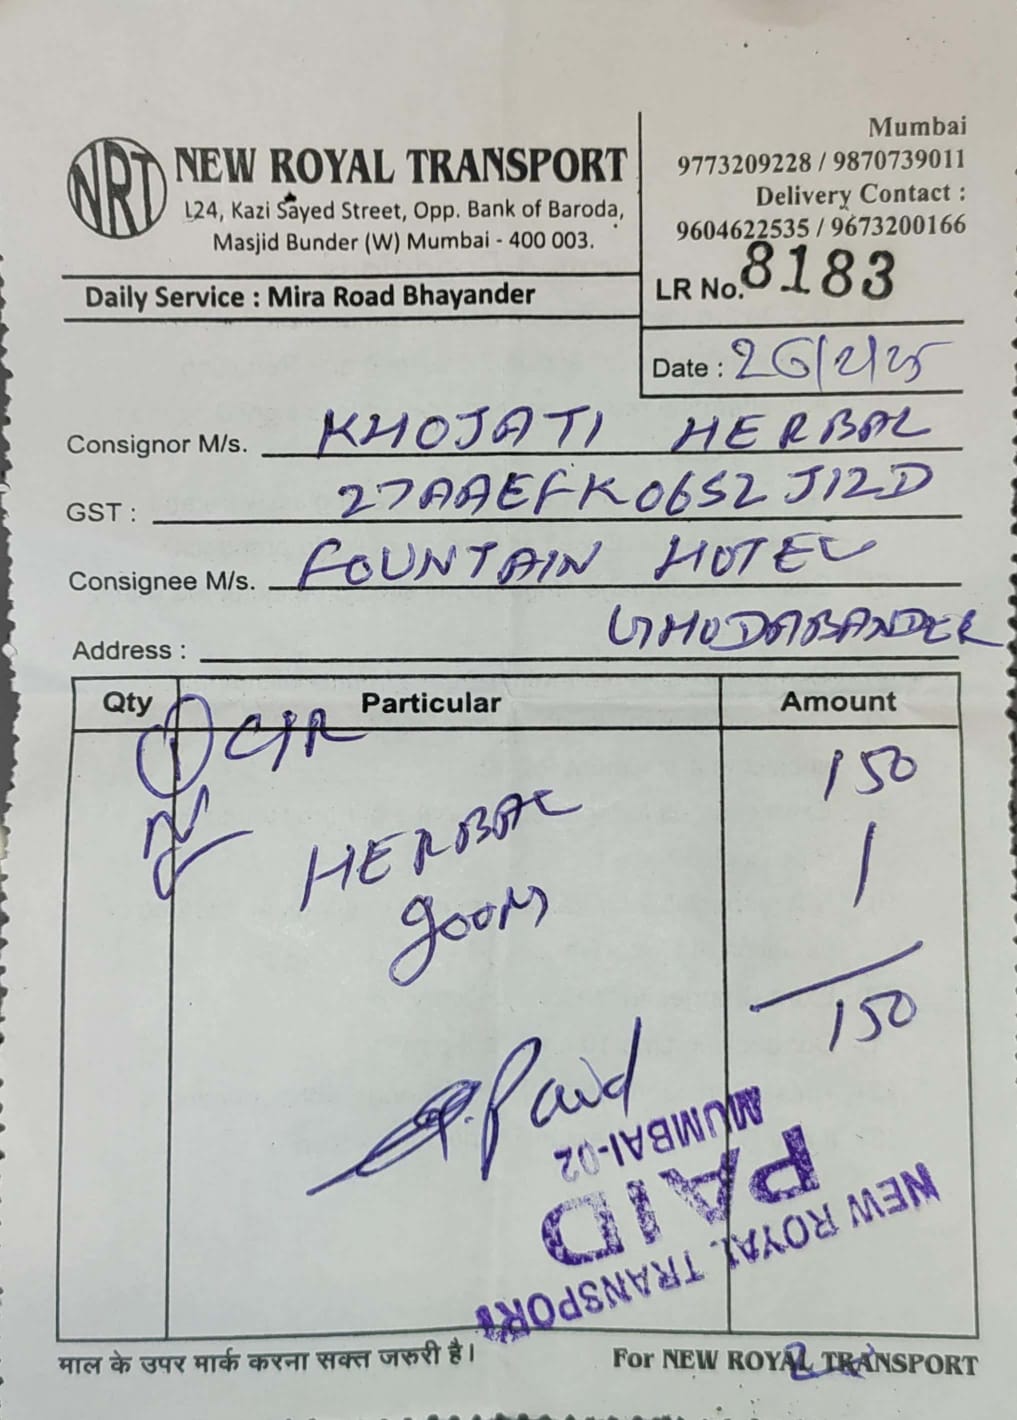 Mumbai
9773209228 / 9870739011
Delivery Contact :
9604622535 / 9673200166
NRT NEW ROYAL TRANSPORT
124, Kazi Sayed Street, Opp. Bank of Baroda,
Masjid Bunder (W) Mumbai - 400 003.
Daily Service : Mira Road Bhayander
LR No. 8183
Date : 26/2/25
Consignor M/s. KHOJATI HERBAL
GST : 27AAEFK0652J1ZD
Consignee M/s. FOUNTAIN HOTEL
Address : GHODABANDER
Qty Particular Amount
1 150
HERBAL
goods
150
Paid
NEW ROYAL TRANSPORT
PAID
MUMBAI-02
माल के उपर मार्क करना सक्त जरुरी है।
For NEW ROYAL TRANSPORT